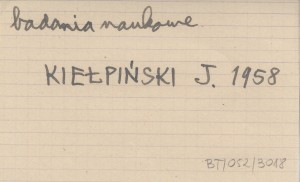 badania naukowe
KIEŁPIŃSKI J. 1958
BT/052/3018